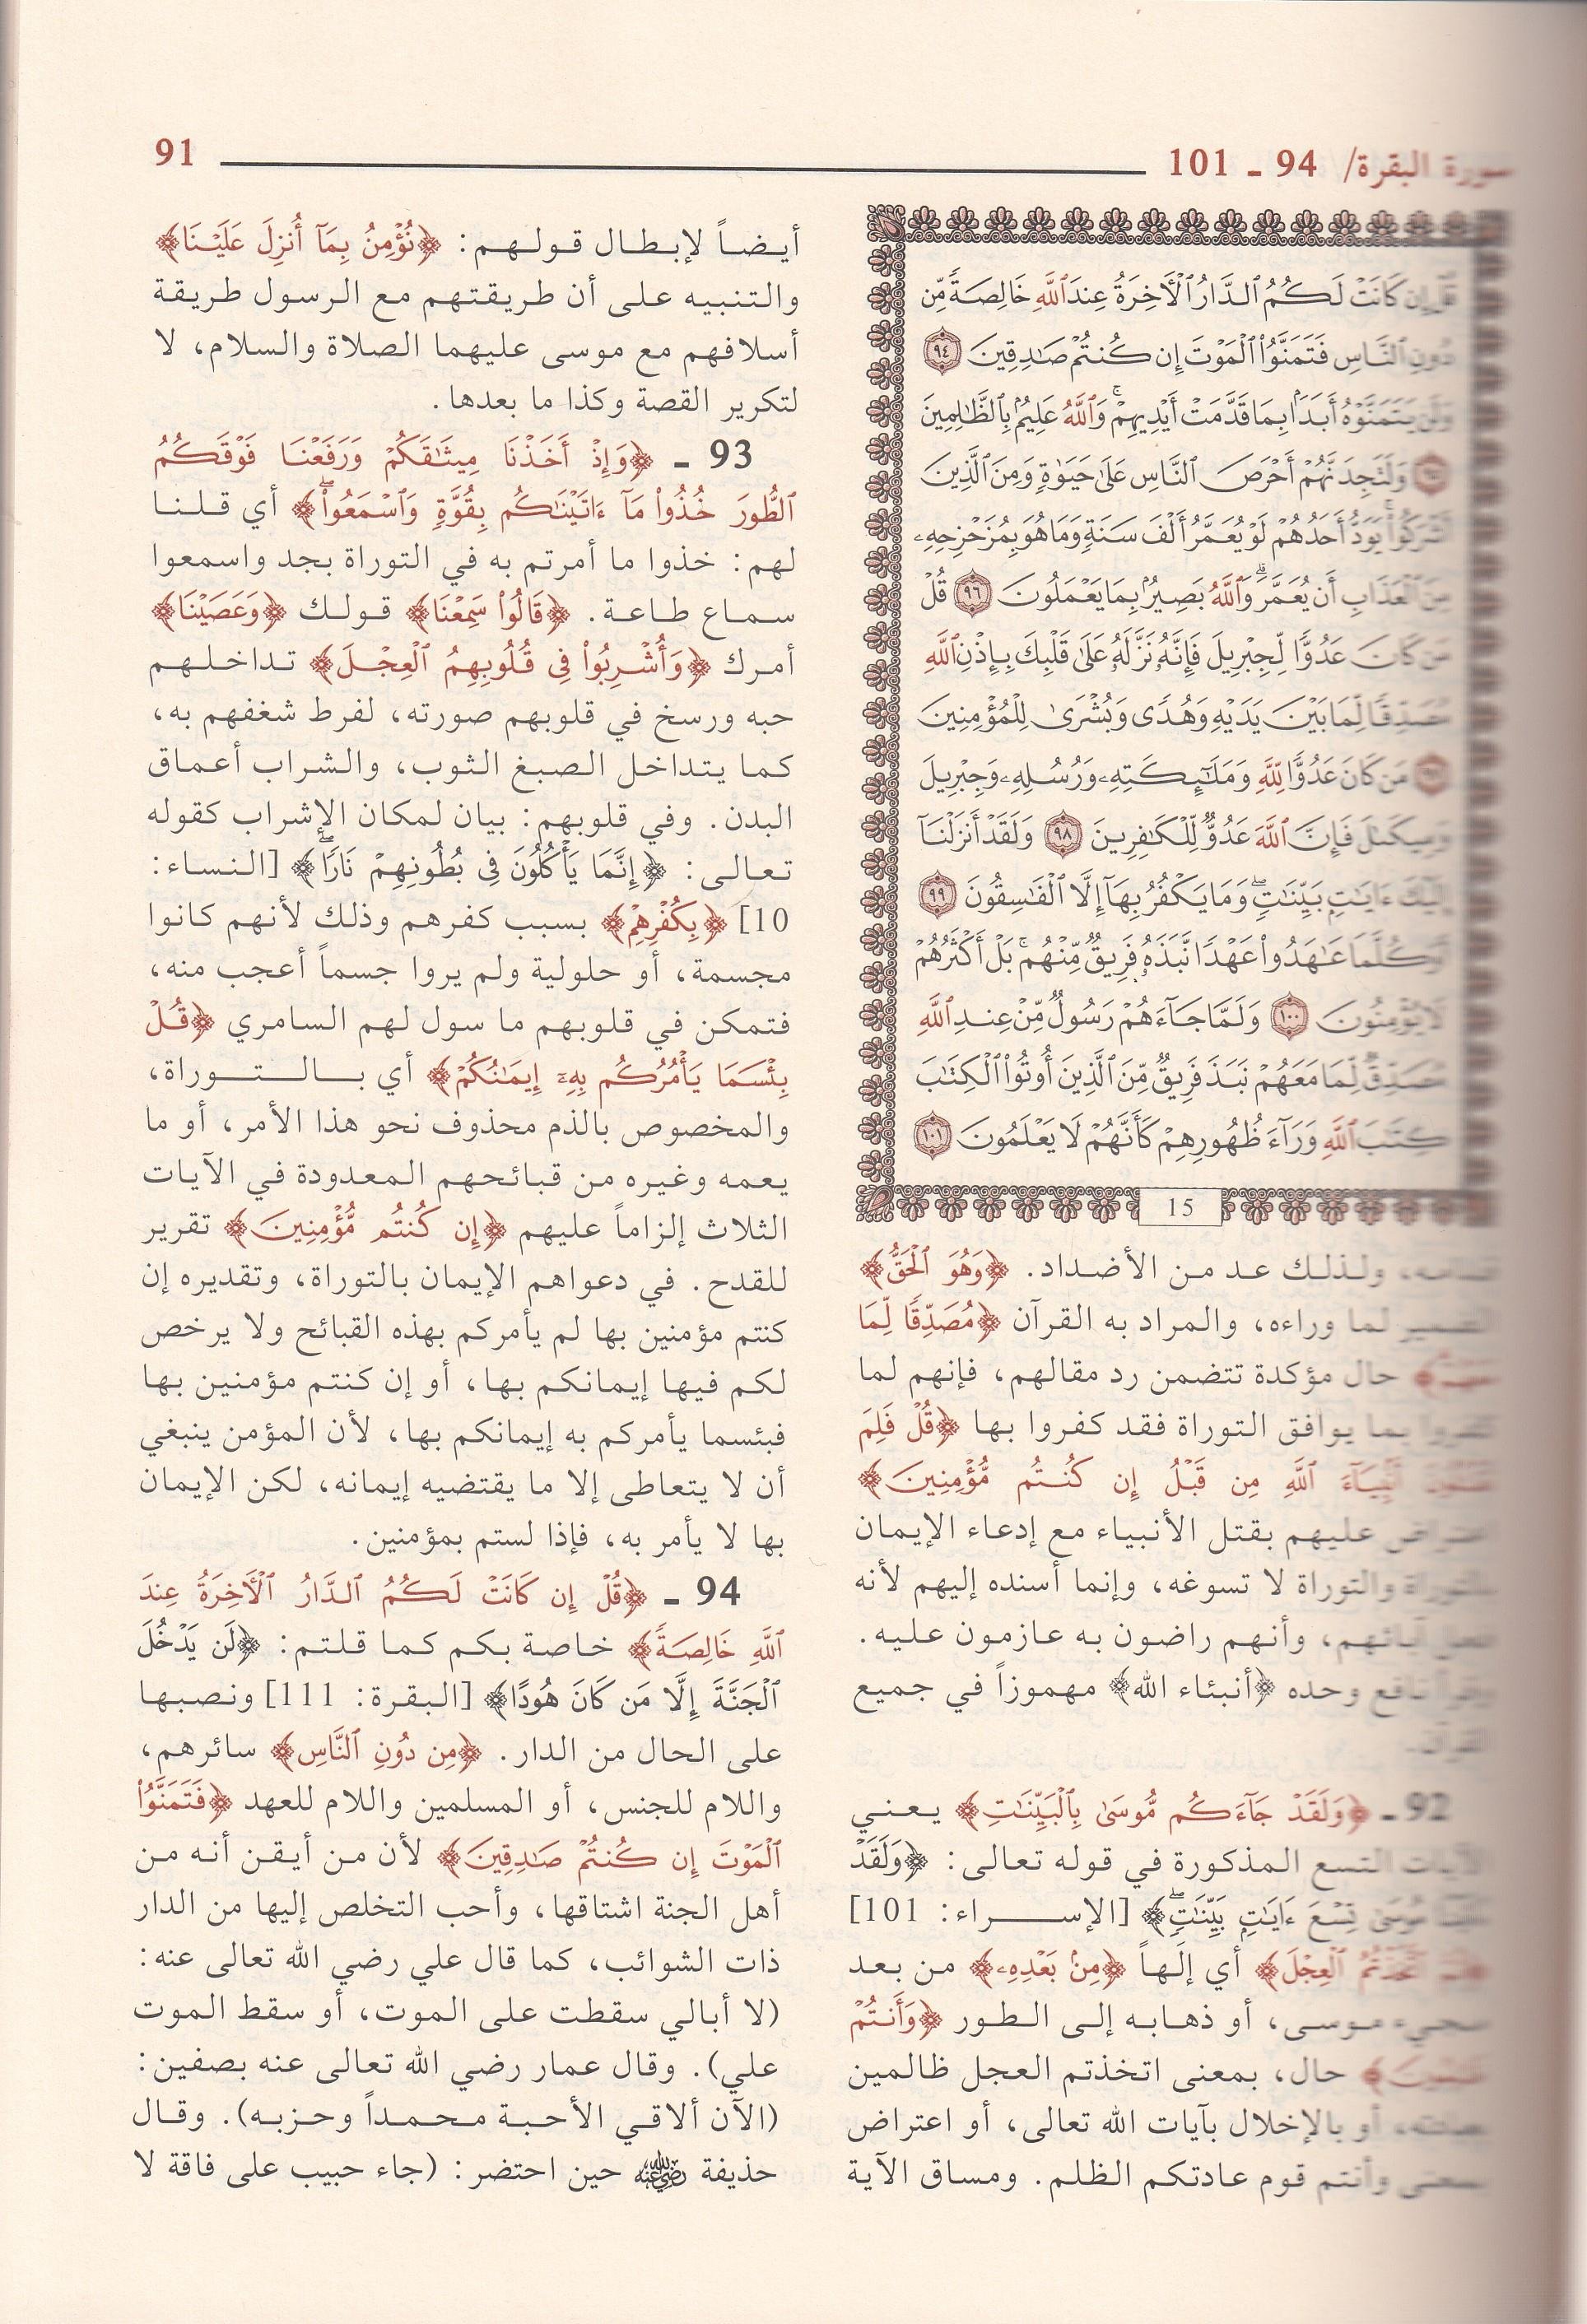 سورة البقرة/ 94 ـ 101
91
قُلْ إِن كَانَتْ لَكُمُ ٱلدَّارُ ٱلْأَخِرَةُ عِندَ ٱللَّهِ خَالِصَةً مِّن
دُونِ ٱلنَّاسِ فَتَمَنَّوُا۟ ٱلْمَوْتَ إِن كُنتُمْ صَٰدِقِينَ ٩٤
وَلَن يَتَمَنَّوْهُ أَبَدًۢا بِمَا قَدَّمَتْ أَيْدِيهِمْ ۗ وَٱللَّهُ عَلِيمٌۢ بِٱلظَّٰلِمِينَ
٩٥ وَلَتَجِدَنَّهُمْ أَحْرَصَ ٱلنَّاسِ عَلَىٰ حَيَوٰةٍ وَمِنَ ٱلَّذِينَ
أَشْرَكُوا۟ ۚ يَوَدُّ أَحَدُهُمْ لَوْ يُعَمَّرُ أَلْفَ سَنَةٍ وَمَا هُوَ بِمُزَحْزِحِهِۦ
مِنَ ٱلْعَذَابِ أَن يُعَمَّرَ ۗ وَٱللَّهُ بَصِيرٌۢ بِمَا يَعْمَلُونَ ٩٦ قُلْ
مَن كَانَ عَدُوًّا لِّجِبْرِيلَ فَإِنَّهُۥ نَزَّلَهُۥ عَلَىٰ قَلْبِكَ بِإِذْنِ ٱللَّهِ
مُصَدِّقًا لِّمَا بَيْنَ يَدَيْهِ وَهُدًى وَبُشْرَىٰ لِلْمُؤْمِنِينَ
٩٧ مَن كَانَ عَدُوًّا لِّلَّهِ وَمَلَٰٓئِكَتِهِۦ وَرُسُلِهِۦ وَجِبْرِيلَ
وَمِيكَىٰلَ فَإِنَّ ٱللَّهَ عَدُوٌّ لِّلْكَٰفِرِينَ ٩٨ وَلَقَدْ أَنزَلْنَآ
إِلَيْكَ ءَايَٰتٍۭ بَيِّنَٰتٍ ۖ وَمَا يَكْفُرُ بِهَآ إِلَّا ٱلْفَٰسِقُونَ ٩٩
أَوَكُلَّمَا عَٰهَدُوا۟ عَهْدًا نَّبَذَهُۥ فَرِيقٌ مِّنْهُم ۚ بَلْ أَكْثَرُهُمْ
لَا يُؤْمِنُونَ ١٠٠ وَلَمَّا جَآءَهُمْ رَسُولٌ مِّنْ عِندِ ٱللَّهِ
مُصَدِّقٌ لِّمَا مَعَهُمْ نَبَذَ فَرِيقٌ مِّنَ ٱلَّذِينَ أُوتُوا۟ ٱلْكِتَٰبَ
كِتَٰبَ ٱللَّهِ وَرَآءَ ظُهُورِهِمْ كَأَنَّهُمْ لَا يَعْلَمُونَ ١٠١
15
ولذلك عد من الأضداد. ﴿وَهُوَ ٱلْحَقُّ﴾
الضمير لما وراءه، والمراد به القرآن ﴿مُصَدِّقًا لِّمَا
حال مؤكدة تتضمن رد مقالهم، فإنهم لما
كفروا بما يوافق التوراة فقد كفروا بها ﴿قُلْ فَلِمَ
تَقْتُلُونَ أَنۢبِيَآءَ ٱللَّهِ مِن قَبْلُ إِن كُنتُم مُّؤْمِنِينَ﴾
اعتراض عليهم بقتل الأنبياء مع إدعاء الإيمان
بالتوراة والتوراة لا تسوغه، وإنما أسنده إليهم لأنه
فعل آبائهم، وأنهم راضون به عازمون عليه.
وقرأ نافع وحده ﴿أنبئاء الله﴾ مهموزاً في جميع
القرآن.
92 ـ ﴿وَلَقَدْ جَآءَكُم مُّوسَىٰ بِٱلْبَيِّنَٰتِ﴾ يعني
الآيات التسع المذكورة في قوله تعالى: ﴿وَلَقَدْ
ءَاتَيْنَا مُوسَىٰ تِسْعَ ءَايَٰتٍۭ بَيِّنَٰتٍ ۖ﴾ [الإسراء: 101]
﴿ثُمَّ ٱتَّخَذْتُمُ ٱلْعِجْلَ﴾ أي إلَهاً ﴿مِنۢ بَعْدِهِۦ﴾ من بعد
مجيء موسى، أو ذهابه إلى الطور ﴿وَأَنتُمْ
ظَٰلِمُونَ﴾ حال، بمعنى اتخذتم العجل ظالمين
أو بالإخلال بآيات الله تعالى، أو اعتراض
بمعنى وأنتم قوم عادتكم الظلم. ومساق الآية
أيضاً لإبطال قولهم: ﴿نُؤْمِنُ بِمَآ أُنزِلَ عَلَيْنَا﴾
والتنبيه على أن طريقتهم مع الرسول طريقة
أسلافهم مع موسى عليهما الصلاة والسلام، لا
لتكرير القصة وكذا ما بعدها.
93 ـ ﴿وَإِذْ أَخَذْنَا مِيثَٰقَكُمْ وَرَفَعْنَا فَوْقَكُمُ
ٱلطُّورَ خُذُوا۟ مَآ ءَاتَيْنَٰكُم بِقُوَّةٍ وَٱسْمَعُوا۟ ۖ﴾ أي قلنا
لهم: خذوا ما أمرتم به في التوراة بجد واسمعوا
سماع طاعة. ﴿قَالُوا۟ سَمِعْنَا﴾ قولك ﴿وَعَصَيْنَا﴾
أمرك ﴿وَأُشْرِبُوا۟ فِى قُلُوبِهِمُ ٱلْعِجْلَ﴾ تداخلهم
حبه ورسخ في قلوبهم صورته، لفرط شغفهم به،
كما يتداخل الصبغ الثوب، والشراب أعماق
البدن. وفي قلوبهم: بيان لمكان الإشراب كقوله
تعالى: ﴿إِنَّمَا يَأْكُلُونَ فِى بُطُونِهِمْ نَارًا ۖ﴾ [النساء:
10] ﴿بِكُفْرِهِمْ﴾ بسبب كفرهم وذلك لأنهم كانوا
مجسمة، أو حلولية ولم يروا جسماً أعجب منه،
فتمكن في قلوبهم ما سول لهم السامري ﴿قُلْ
بِئْسَمَا يَأْمُرُكُم بِهِۦٓ إِيمَٰنُكُمْ﴾ أي بالتوراة،
والمخصوص بالذم محذوف نحو هذا الأمر، أو ما
يعمه وغيره من قبائحهم المعدودة في الآيات
الثلاث إلزاماً عليهم ﴿إِن كُنتُم مُّؤْمِنِينَ﴾ تقرير
للقدح. في دعواهم الإيمان بالتوراة، وتقديره إن
كنتم مؤمنين بها لم يأمركم بهذه القبائح ولا يرخص
لكم فيها إيمانكم بها، أو إن كنتم مؤمنين بها
فبئسما يأمركم به إيمانكم بها، لأن المؤمن ينبغي
أن لا يتعاطى إلا ما يقتضيه إيمانه، لكن الإيمان
بها لا يأمر به، فإذا لستم بمؤمنين.
94 ـ ﴿قُلْ إِن كَانَتْ لَكُمُ ٱلدَّارُ ٱلْأَخِرَةُ عِندَ
ٱللَّهِ خَالِصَةً﴾ خاصة بكم كما قلتم: ﴿لَن يَدْخُلَ
ٱلْجَنَّةَ إِلَّا مَن كَانَ هُودًا﴾ [البقرة: 111] ونصبها
على الحال من الدار. ﴿مِن دُونِ ٱلنَّاسِ﴾ سائرهم،
واللام للجنس، أو المسلمين واللام للعهد ﴿فَتَمَنَّوُا۟
ٱلْمَوْتَ إِن كُنتُمْ صَٰدِقِينَ﴾ لأن من أيقن أنه من
أهل الجنة اشتاقها، وأحب التخلص إليها من الدار
ذات الشوائب، كما قال علي رضي الله تعالى عنه:
(لا أبالي سقطت على الموت، أو سقط الموت
علي). وقال عمار رضي الله تعالى عنه بصفين:
(الآن ألاقي الأحبة محمداً وحزبه). وقال
حذيفة رضي الله عنه حين احتضر: (جاء حبيب على فاقة لا